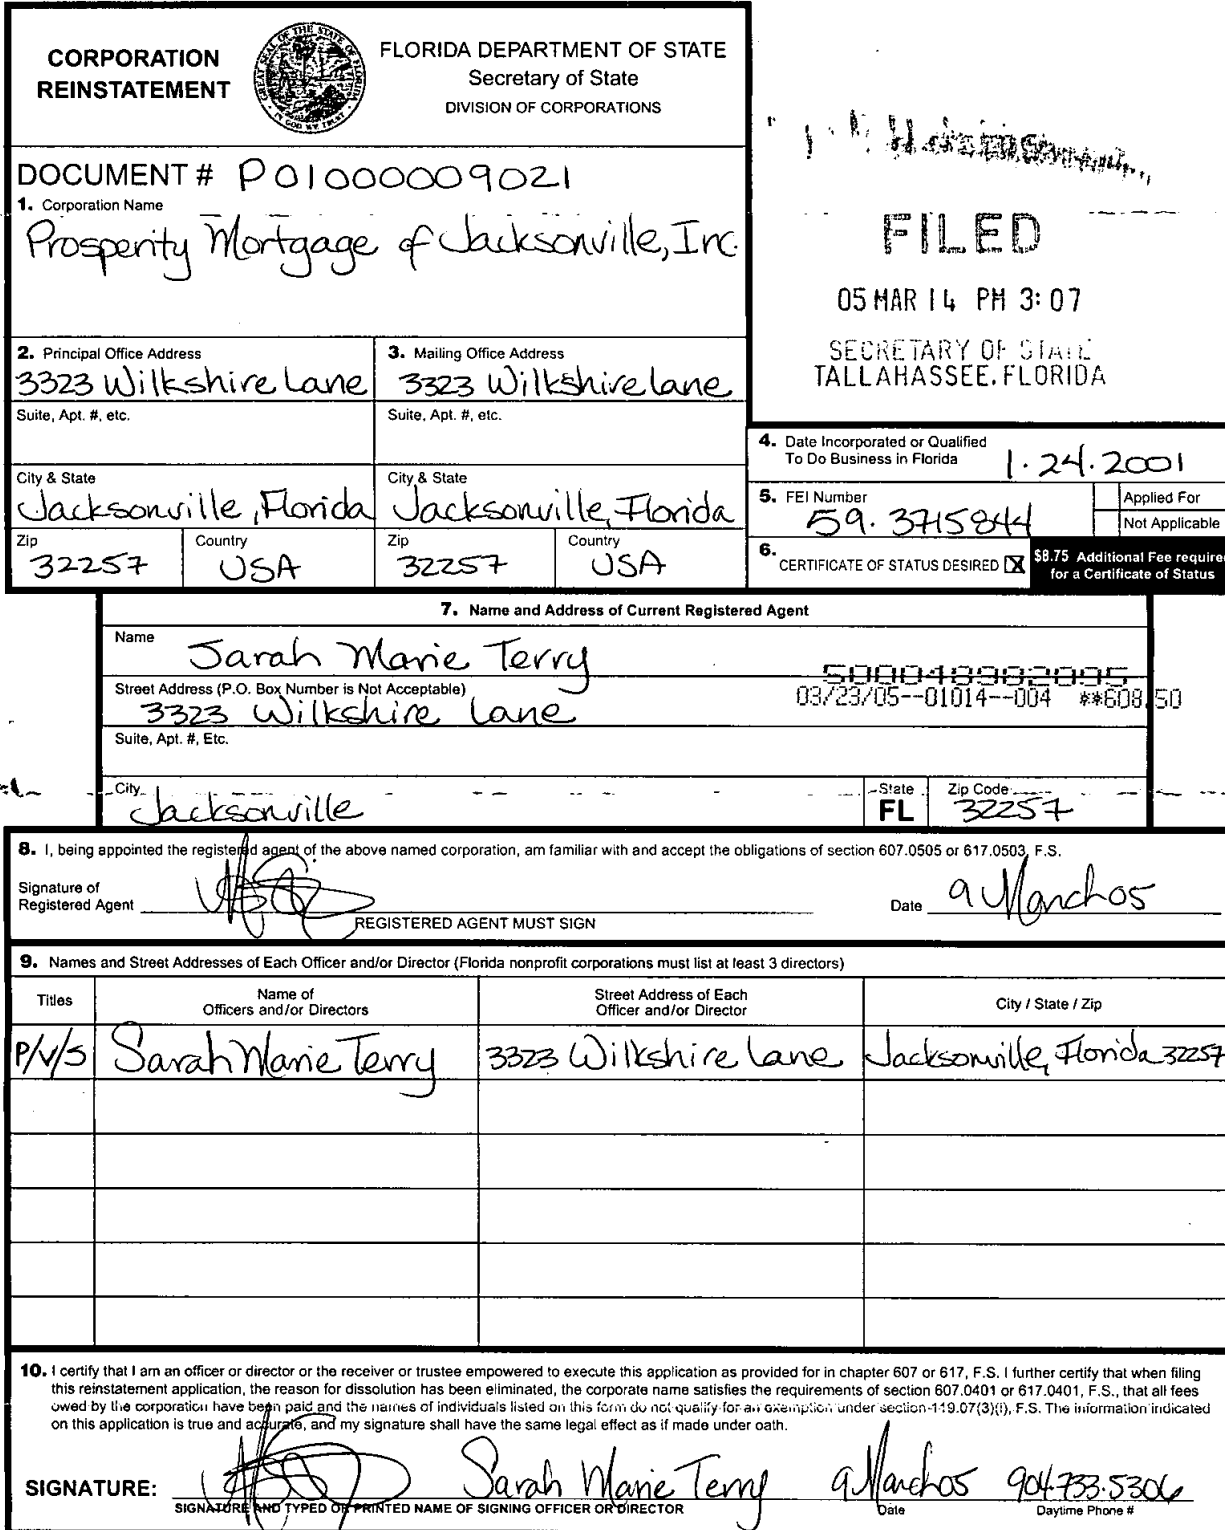 CORPORATION
REINSTATEMENT
GREAT SEAL OF THE STATE OF FLORIDA
IN GOD WE TRUST
FLORIDA DEPARTMENT OF STATE
Secretary of State
DIVISION OF CORPORATIONS
DOCUMENT # P01000009021
1. Corporation Name
Prosperity Mortgage of Jacksonville, Inc.
FILED
05 MAR 14 PM 3:07
SECRETARY OF STATE
TALLAHASSEE, FLORIDA
2. Principal Office Address
3323 Wilkshire Lane
3. Mailing Office Address
3323 Wilkshire Lane
Suite, Apt. #, etc.
Suite, Apt. #, etc.
City & State
Jacksonville, Florida
City & State
Jacksonville, Florida
Zip
32257
Country
USA
Zip
32257
Country
USA
4. Date Incorporated or Qualified
To Do Business in Florida 1.24.2001
5. FEI Number
59.3715844
Applied For
Not Applicable
6. CERTIFICATE OF STATUS DESIRED X
$8.75 Additional Fee required
for a Certificate of Status
7. Name and Address of Current Registered Agent
Name
Sarah Marie Terry
500048982095
Street Address (P.O. Box Number is Not Acceptable)
03/23/05--01014--004 **608.50
3323 Wilkshire Lane
Suite, Apt. #, Etc.
City
Jacksonville
State
FL
Zip Code
32257
8. I, being appointed the registered agent of the above named corporation, am familiar with and accept the obligations of section 607.0505 or 617.0503, F.S.
Signature of
Registered Agent
REGISTERED AGENT MUST SIGN
Date 9 March 05
9. Names and Street Addresses of Each Officer and/or Director (Florida nonprofit corporations must list at least 3 directors)
Titles
Name of
Officers and/or Directors
Street Address of Each
Officer and/or Director
City / State / Zip
P/V/S Sarah Marie Terry 3323 Wilkshire Lane Jacksonville, Florida 32257
10. I certify that I am an officer or director or the receiver or trustee empowered to execute this application as provided for in chapter 607 or 617, F.S. I further certify that when filing
this reinstatement application, the reason for dissolution has been eliminated, the corporate name satisfies the requirements of section 607.0401 or 617.0401, F.S., that all fees
owed by the corporation have been paid and the names of individuals listed on this form do not qualify for an exemption under section 119.07(3)(i), F.S. The information indicated
on this application is true and accurate, and my signature shall have the same legal effect as if made under oath.
SIGNATURE: Sarah Marie Terry 9 March 05 904.733.5306
SIGNATURE AND TYPED OR PRINTED NAME OF SIGNING OFFICER OR DIRECTOR
Date
Daytime Phone #